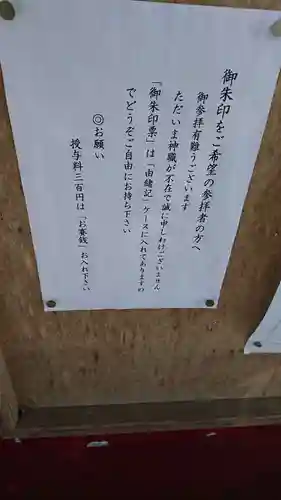 御朱印をご希望の参拝者の方へ
御参拝有難うございます
ただいま神職が不在で誠に申しわけございません
「御朱印票」は「由緒記」ケースに入れてありますの
でどうぞご自由にお持ち下さい
◎お願い
授与料三百円は「お賽銭」お入れ下さい